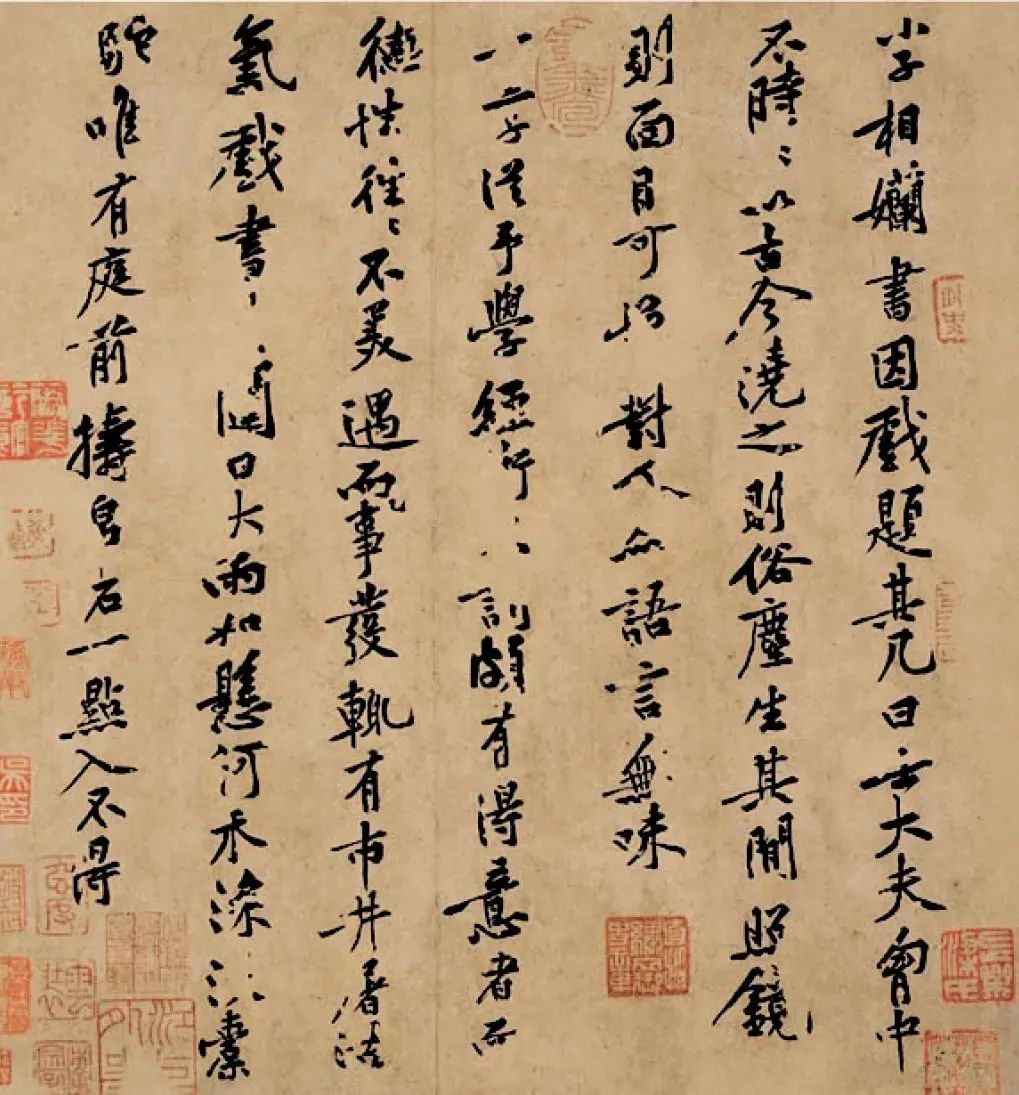 小子相孏書因戲題其几曰士大夫胷中
不時〻以古今澆之則俗塵生其間照鏡
則面目可憎對人亦語言無味
一二子從予學經行訓頗有得意者而
德性往〻不美遇事發輒有市井屠沽
氣戲書曰大雨如懸河禾深沒橐
駝唯有庭前擣帛石一點入不得